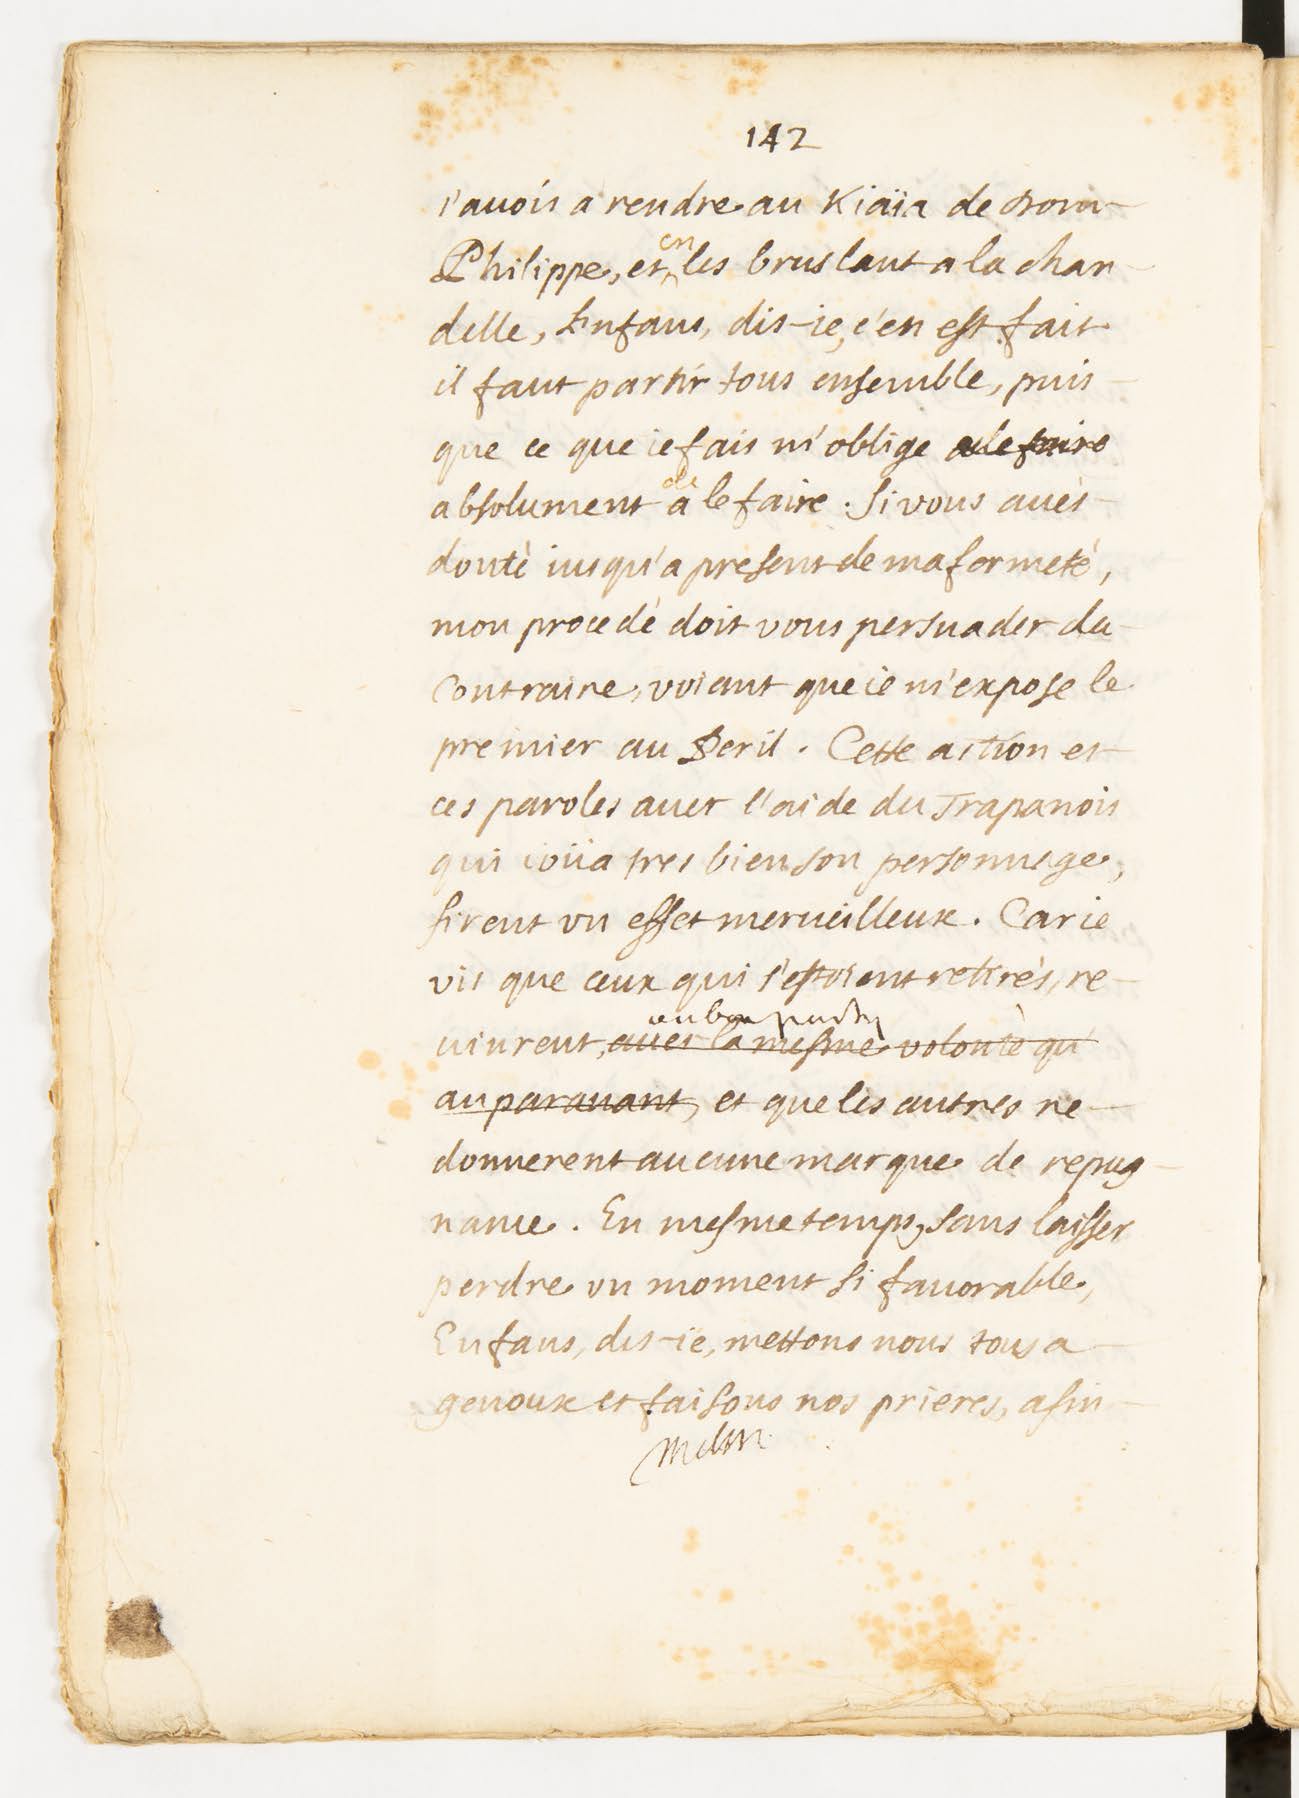 142
i'auois a rendre au Kiaïa de Dom
Philippe, et en les bruslant a la chan
delle, Enfans, dis-ie, c'en est fait
il faut partir tous ensemble, puis
que ce que ie fais m'oblige a le faire
absolument a le faire. Si vous aués
douté iusqu'a present de ma fermeté,
mon procedé doit vous persuader du
contraire, voiant que ie m'expose le
premier au Peril. Cette action et
ces paroles auec l'aide du Trapanois
qui ioüa tres bien son personnage,
firent vn effet merueilleux. Car ie
vis que ceux qui s'estoient retirés, re
uinrent, auec la mesme volonté qu'
auparauant, et que les autres ne
donnerent aucune marque de repug
nance. En mesme temps, sans laisser
perdre vn moment si fauorable,
Enfans, dis-ie, mettons nous tous a
genoux et faisons nos prieres, afin